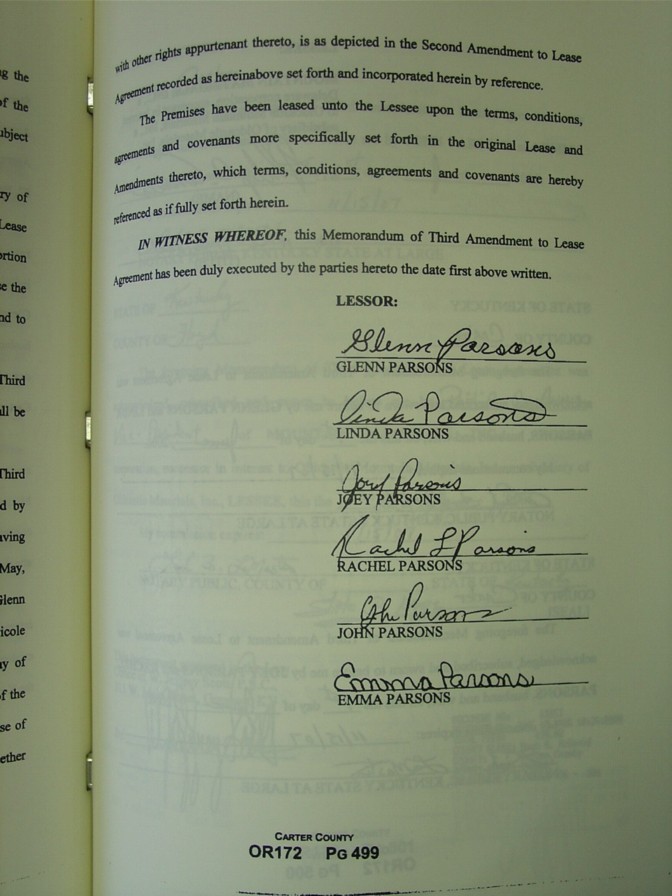 g the
of the
ubject
ry of
Lease
ortion
e the
nd to
Third
ll be
Third
d by
aving
May,
Glenn
icole
y of
of the
se of
ether
with other rights appurtenant thereto, is as depicted in the Second Amendment to Lease
Agreement recorded as hereinabove set forth and incorporated herein by reference.
The Premises have been leased unto the Lessee upon the terms, conditions,
agreements and covenants more specifically set forth in the original Lease and
Amendments thereto, which terms, conditions, agreements and covenants are hereby
referenced as if fully set forth herein.
IN WITNESS WHEREOF, this Memorandum of Third Amendment to Lease
Agreement has been duly executed by the parties hereto the date first above written.
LESSOR:
Glenn Parsons
GLENN PARSONS
Linda Parsons
LINDA PARSONS
Joey Parsons
JOEY PARSONS
Rachel L Parsons
RACHEL PARSONS
John Parsons
JOHN PARSONS
Emma Parsons
EMMA PARSONS
CARTER COUNTY
OR172 PG 499